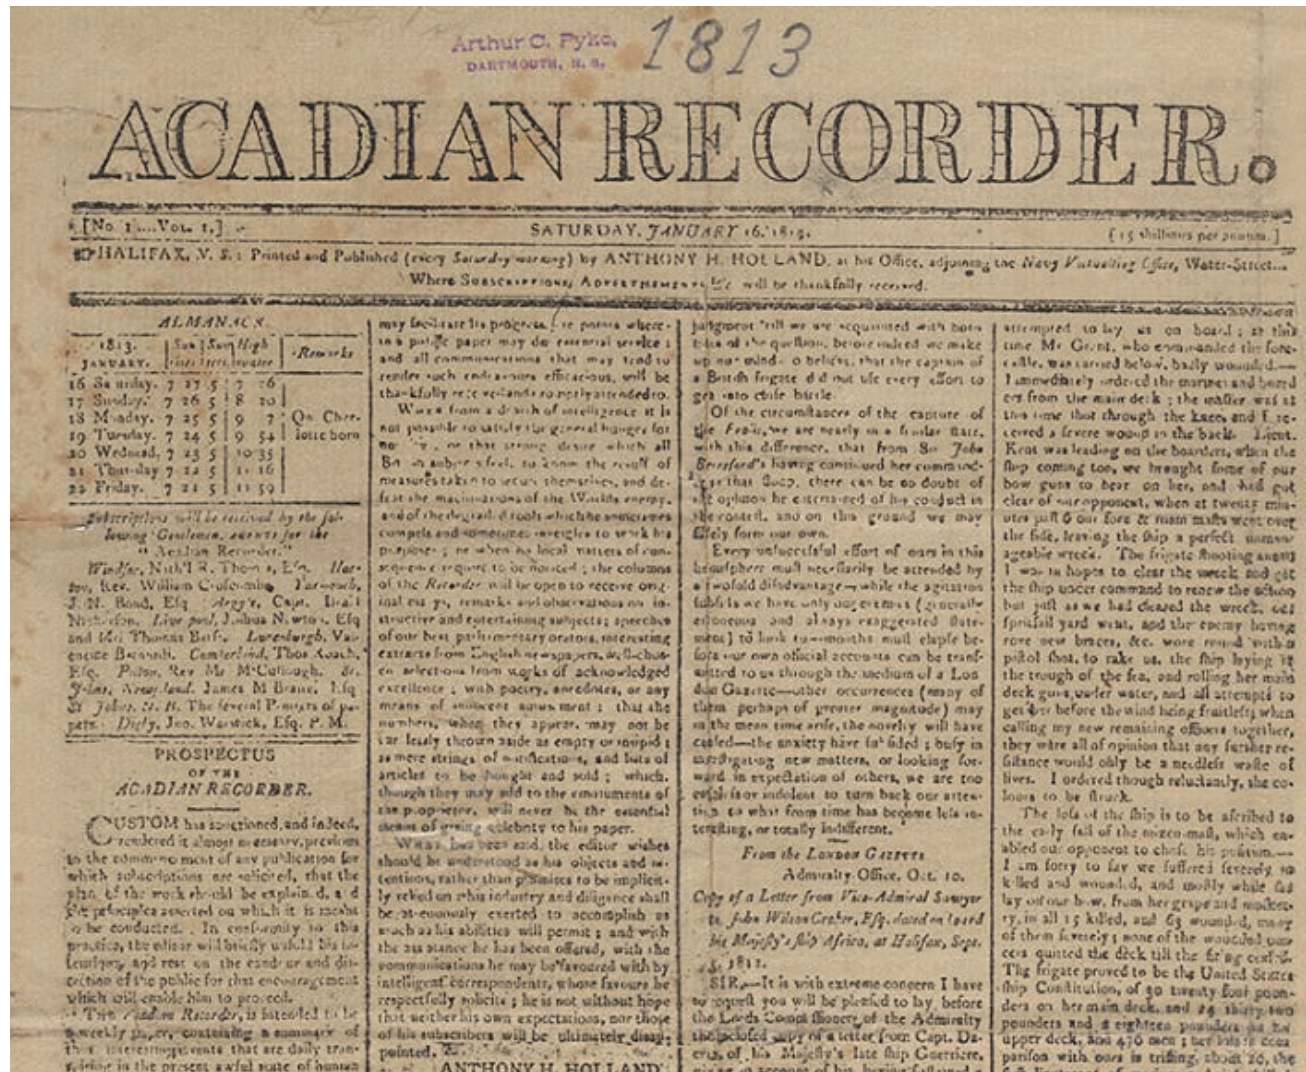 Arthur C. Pyke,
DARTMOUTH, N. S.
1813
ACADIAN RECORDER.
[No 1....Vol. 1.]
SATURDAY, JANUARY 16, 1813.
[15 shillings per annum.]
HALIFAX, N. S.: Printed and Published (every Saturday morning) by ANTHONY H. HOLLAND, at his Office, adjoining the Navy Victualling Office, Water-Street...
Where Subscriptions, Advertisements, &c will be thankfully received.
ALMANACK.
1813. Sun Sun High Remarks
JANUARY. rises sets water
16 Saturday. 7 27 5 7 26
17 Sunday. 7 26 5 8 20
18 Monday. 7 25 5 9 7 Qn Char-
19 Tuesday. 7 24 5 9 54 lotte born
20 Wednesd. 7 23 5 10 35
21 Thursday 7 22 5 11 16
22 Friday. 7 21 5 11 59
Subscriptions will be received by the fol-
lowing Gentlemen, agents for the
"Acadian Recorder."
Windsor, Esq. Hor-
ton, Rev. William Yarmouth,
J. N. Bond, Esq Argyle, Capt. Israel
Liverpool, Joshua Newton, Esq
and Mr Thomas Lunenburgh,
Cumberland, Thos Roach,
Esq. Pictou, Rev Mr McCullough, St.
Johns, Newfoundland, James M Esq
St Johns, N. B. The several Printers of pa-
pers. Digby, Jno. Warwick, Esq. P. M.
PROSPECTUS
OF THE
ACADIAN RECORDER.
CUSTOM has sanctioned, and indeed,
rendered it almost necessary, previous
to the commencement of any publication for
which subscriptions are solicited, that the
plan of the work should be explained, and
the principles asserted on which it is meant
to be conducted. In conformity to this
practice, the editor will briefly unfold his in-
tentions, and rest on the candour and dis-
cretion of the public for that encouragement
which will enable him to proceed.
The Acadian Recorder, is intended to be
a weekly paper, containing a summary of
the interesting events that are daily tran-
spiring in the present awful state of human
may facilitate its progress, the points where-
in a public paper may do essential service;
and all communications that may tend to
render such endeavours efficacious, will be
thankfully received and promptly attended to.
When from a dearth of intelligence it is
not possible to satisfy the general hunger for
news, or that strong desire which all
British subjects feel, to know the result of
measures taken to secure themselves, and de-
feat the machinations of the Worlds enemy,
and of the degraded tools which he sometimes
compels and sometimes inveigles to work his
purpose; or when no local matters of con-
sequence require to be noticed; the columns
of the Recorder will be open to receive orig-
inal essays, remarks and observations on in-
structive and entertaining subjects; speeches
of our best parliamentary orators, interesting
extracts from English newspapers, well-chos-
en selections from works of acknowledged
excellence; with poetry, anecdotes, or any
means of innocent amusement; that the
numbers, when they appear, may not be
carelessly thrown aside as empty or insipid;
as mere strings of notifications, and lists of
articles to be bought and sold; which,
though they may add to the emoluments of
the proprietor, will never be the essential
means of giving celebrity to his paper.
What has been said, the editor wishes
should be understood as his objects and in-
tentions, rather than promises to be implicit-
ly relied on; his industry and diligence shall
be strenuously exerted to accomplish as
much as his abilities will permit; and with
the assistance he has been offered, with the
communications he may be favoured with by
intelligent correspondents, whose favours he
respectfully solicits; he is not without hope
that neither his own expectations, nor those
of his subscribers will be ultimately disap-
pointed.
ANTHONY H. HOLLAND.
judgment 'till we are acquainted with both
sides of the question, before indeed we make
up our minds to believe, that the captain of
a British frigate did not use every effort to
get into close battle.
Of the circumstances of the capture of
the Frolic, we are nearly in a similar state,
with this difference, that from Sir John
Beresford's having continued her command-
er in that sloop, there can be no doubt of
the opinion he entertained of his conduct in
the contest, and on this ground we may
safely form our own.
Every unsuccessful effort of ours in this
hemisphere must necessarily be attended by
a twofold disadvantage—while the agitation
subsists we have only our enemies (generally
erroneous and always exaggerated state-
ment) to look to—months must elapse be-
fore our own official accounts can be trans-
mitted to us through the medium of a Lon-
don Gazette—other occurrences (many of
them perhaps of greater magnitude) may
in the mean time arise, the novelty will have
ceased—the anxiety have subsided; busy in
investigating new matters, or looking for-
ward in expectation of others, we are too
careless or indolent to turn back our atten-
tion to what from time has become less in-
teresting, or totally indifferent.
From the LONDON GAZETTE
Admiralty Office, Oct. 10.
Copy of a Letter from Vice-Admiral Sawyer
to John Wilson Croker, Esq. dated on board
his Majesty's ship Africa, at Halifax, Sept.
1812.
SIR,—It is with extreme concern I have
to request you will be pleased to lay before
the Lords Commissioners of the Admiralty
the inclosed copy of a letter from Capt. Da-
cres, of his Majesty's late ship Guerriere,
giving an account of his having sustained a
attempted to lay us on board; at this
time Mr Grent, who commanded the fore-
castle, was carried below, badly wounded.—
I immediately ordered the marines and board
ers from the main deck; the master was at
this time shot through the knee, and I re-
ceived a severe wound in the back. Lieut.
Kent was leading on the boarders, when the
ship coming too, we brought some of our
bow guns to bear on her, and had got
clear of our opponent, when at twenty min-
utes past 6 our fore & main masts went over
the side, leaving the ship a perfect unman-
ageable wreck. The frigate shooting ahead
I was in hopes to clear the wreck and get
the ship under command to renew the action
but just as we had cleared the wreck, our
spritsail yard went, and the enemy having
rove new braces, &c. wore round within
pistol shot, to rake us, the ship laying in
the trough of the sea, and rolling her main
deck guns under water, and all attempts to
get her before the wind being fruitless; when
calling my new remaining officers together,
they were all of opinion that any further re-
sistance would only be a needless waste of
lives. I ordered though reluctantly, the co-
lours to be struck.
The loss of the ship is to be ascribed to
the early fall of the mizen-mast, which en-
abled our opponent to chose his position.—
I am sorry to say we suffered severely in
killed and wounded, and mostly while she
lay on our bow, from her grape and musket-
ry, in all 15 killed, and 63 wounded, many
of them severely; none of the wounded offi-
cers quitted the deck till the firing ceased.
The frigate proved to be the United States
ship Constitution, of 30 twenty four poun-
ders on her main deck, and 24 thirty two
pounders and 2 eighteen pounders on her
upper deck, and 476 men; her loss in com
parison with ours is trifling, about 20, the